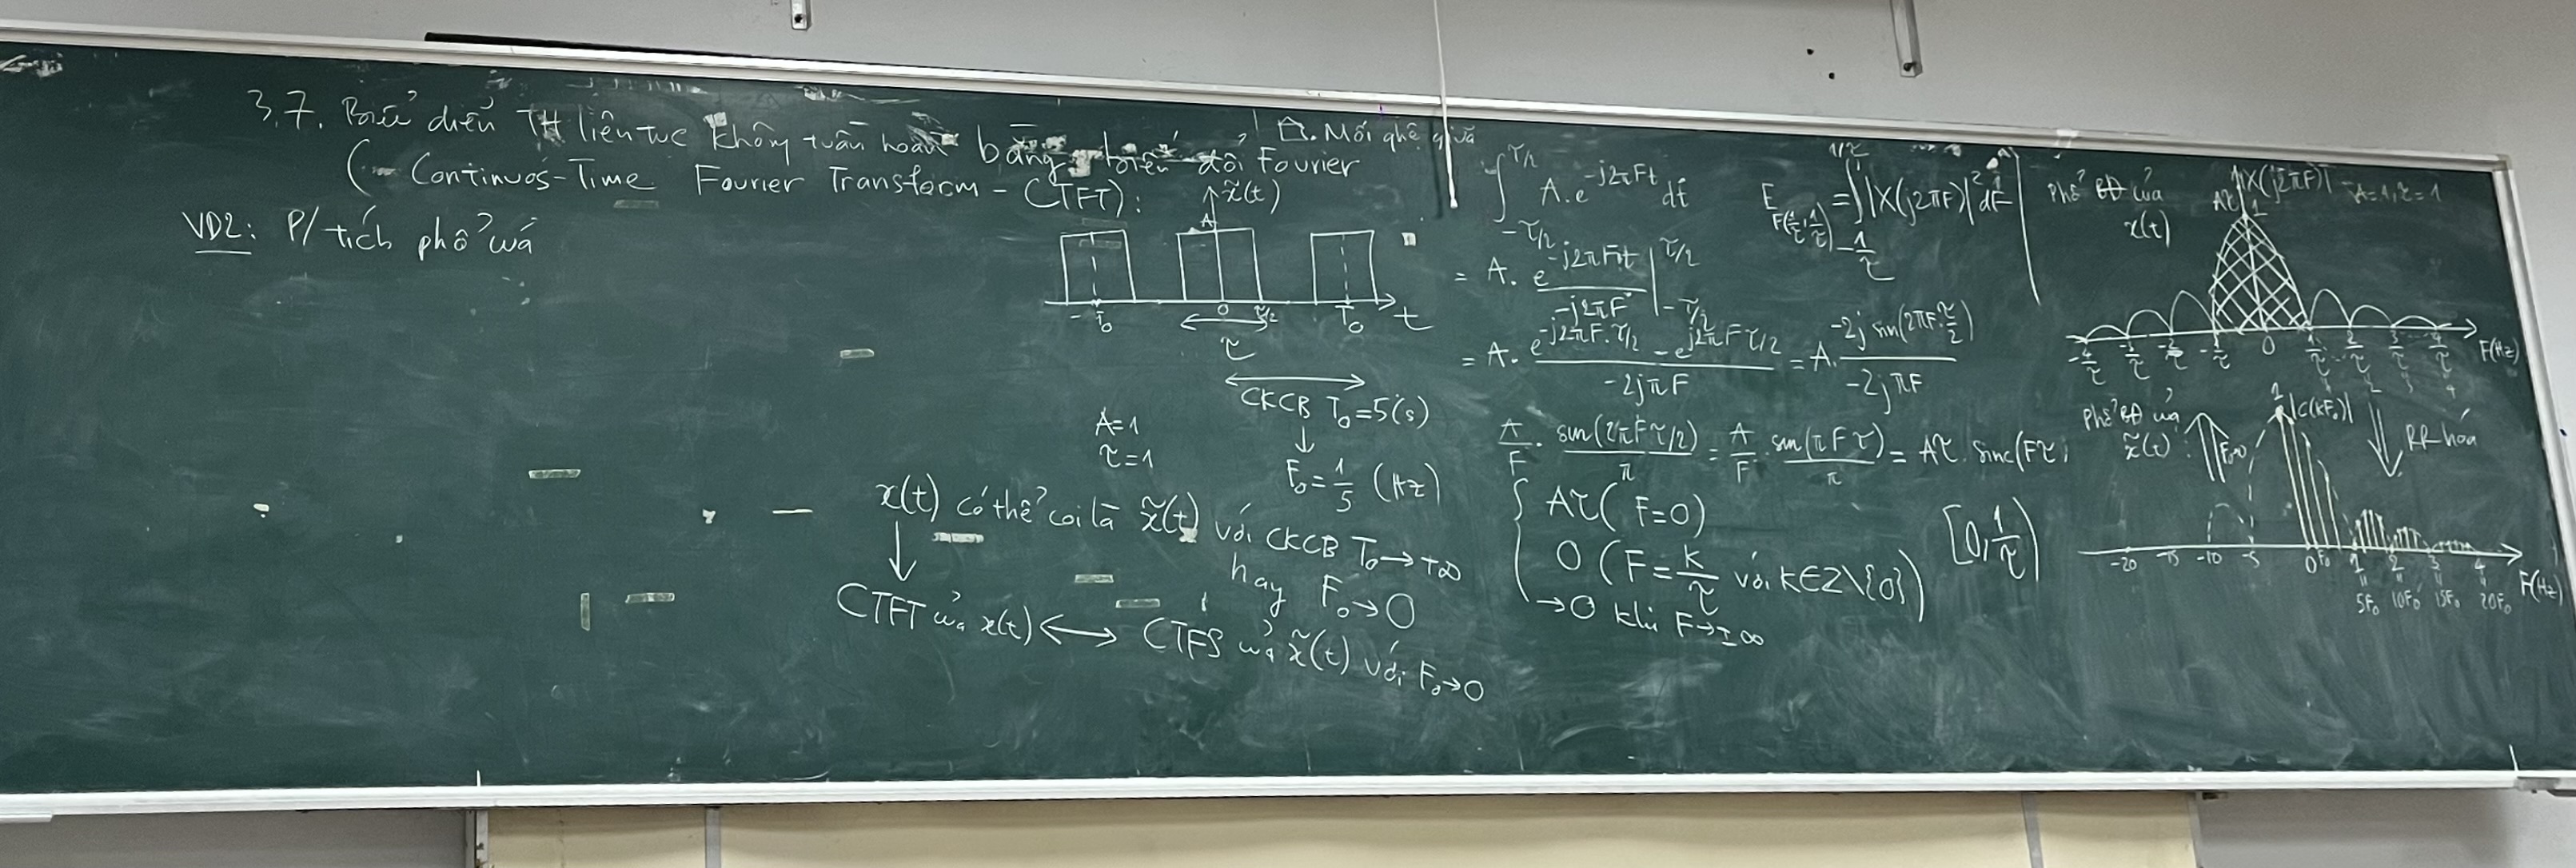 3.7. Biểu diễn TH liên tục không tuần hoàn bằng biến đổi Fourier
(Continuos-Time Fourier Transform - CTFT):
VD2: P/tích phổ của
. Mối qhệ giữa
x̃(t)
A
-T₀ 0 τ/2 T₀ t
τ
CKCB T₀=5(s)
↓
F₀=1/5 (Hz)
A=1
τ=1
x(t) có thể coi là x̃(t) với CKCB T₀→+∞
hay F₀→0
↓
CTFT của x(t) ⟷ CTFS của x̃(t) với F₀→0
∫_{-τ/2}^{τ/2} A.e^{-j2πFt} dt
= A. e^{-j2πFt}/(-j2πF) |_{-τ/2}^{τ/2}
= A. (e^{-j2πF.τ/2} - e^{j2πFτ/2})/(-2jπF) = A. (-2j sin(2πF.τ/2))/(-2jπF)
A/F . sin(2πFτ/2)/π = A/F . sin(πFτ)/π = Aτ. sinc(Fτ)
{ Aτ (F=0)
0 (F=k/τ với k∈Z\{0})
→0 khi F→±∞
[0,1/τ)
E = ∫_{-1/τ}^{1/τ} |X(j2πF)|² dF
Phổ BĐ của
x(t)
|X(j2πF)| A=1, τ=1
Aτ 1
-4/τ -3/τ -2/τ -1/τ 0 1/τ 2/τ 3/τ 4/τ F(Hz)
Phổ BĐ của
x̃(t):
F₀→0
1 |C(kF₀)|
RR hóa
-20 -15 -10 -5 0 F₀ 1 2 3 4 F(Hz)
5F₀ 10F₀ 15F₀ 20F₀